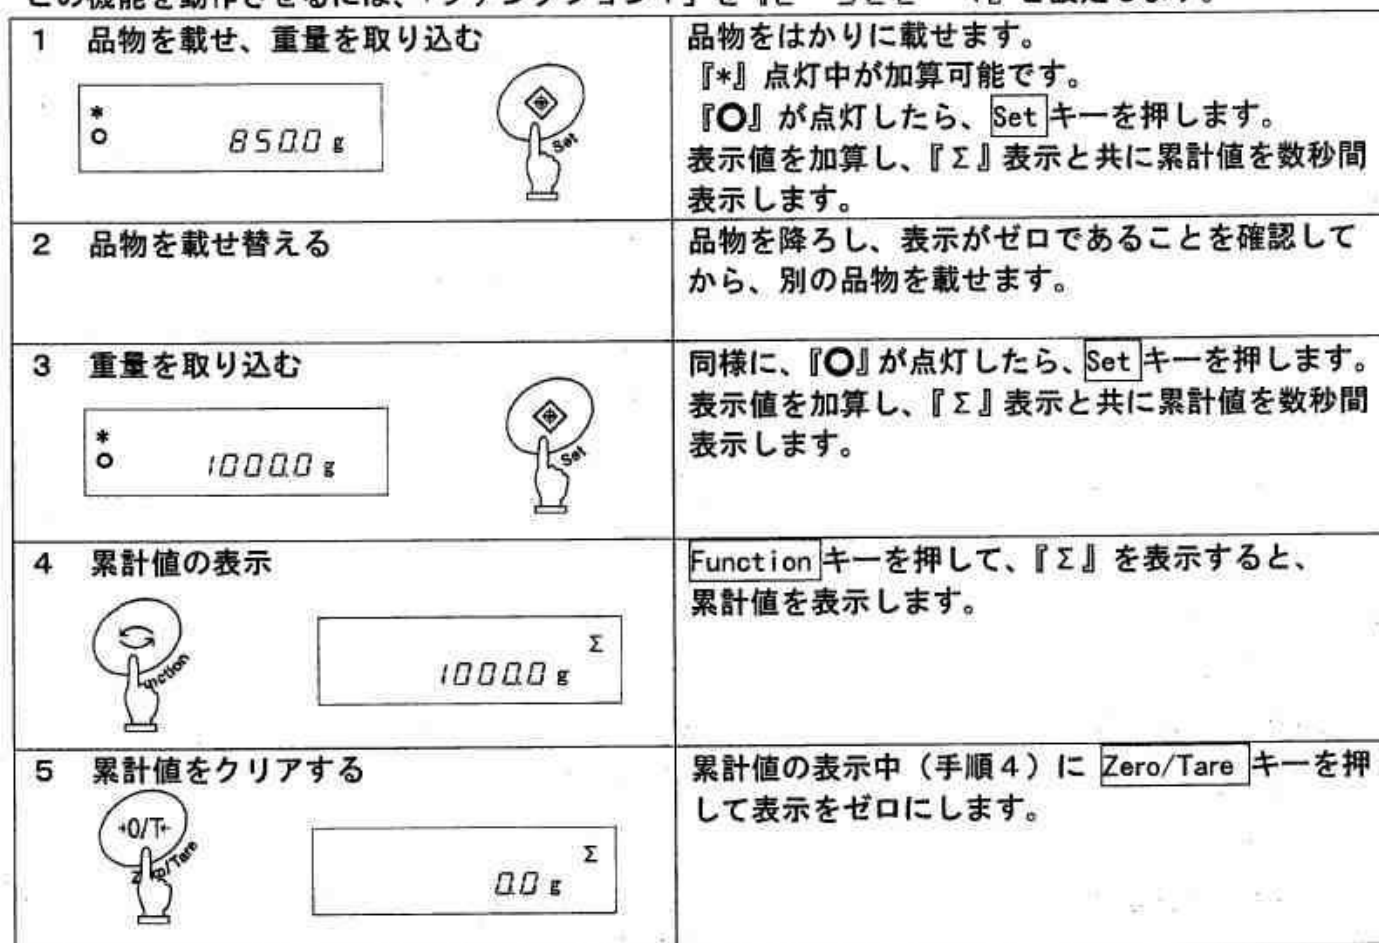 1 品物を載せ、重量を取り込む
*
○ 850.0 g
Set
品物をはかりに載せます。
『*』点灯中が加算可能です。
『○』が点灯したら、Setキーを押します。
表示値を加算し、『Σ』表示と共に累計値を数秒間
表示します。
2 品物を載せ替える
品物を降ろし、表示がゼロであることを確認して
から、別の品物を載せます。
3 重量を取り込む
*
○ 1000.0 g
Set
同様に、『○』が点灯したら、Setキーを押します。
表示値を加算し、『Σ』表示と共に累計値を数秒間
表示します。
4 累計値の表示
Σ
1000.0 g
Functionキーを押して、『Σ』を表示すると、
累計値を表示します。
5 累計値をクリアする
→0/T←
Zero/Tare
Σ
0.0 g
累計値の表示中（手順4）に Zero/Tare キーを押
して表示をゼロにします。